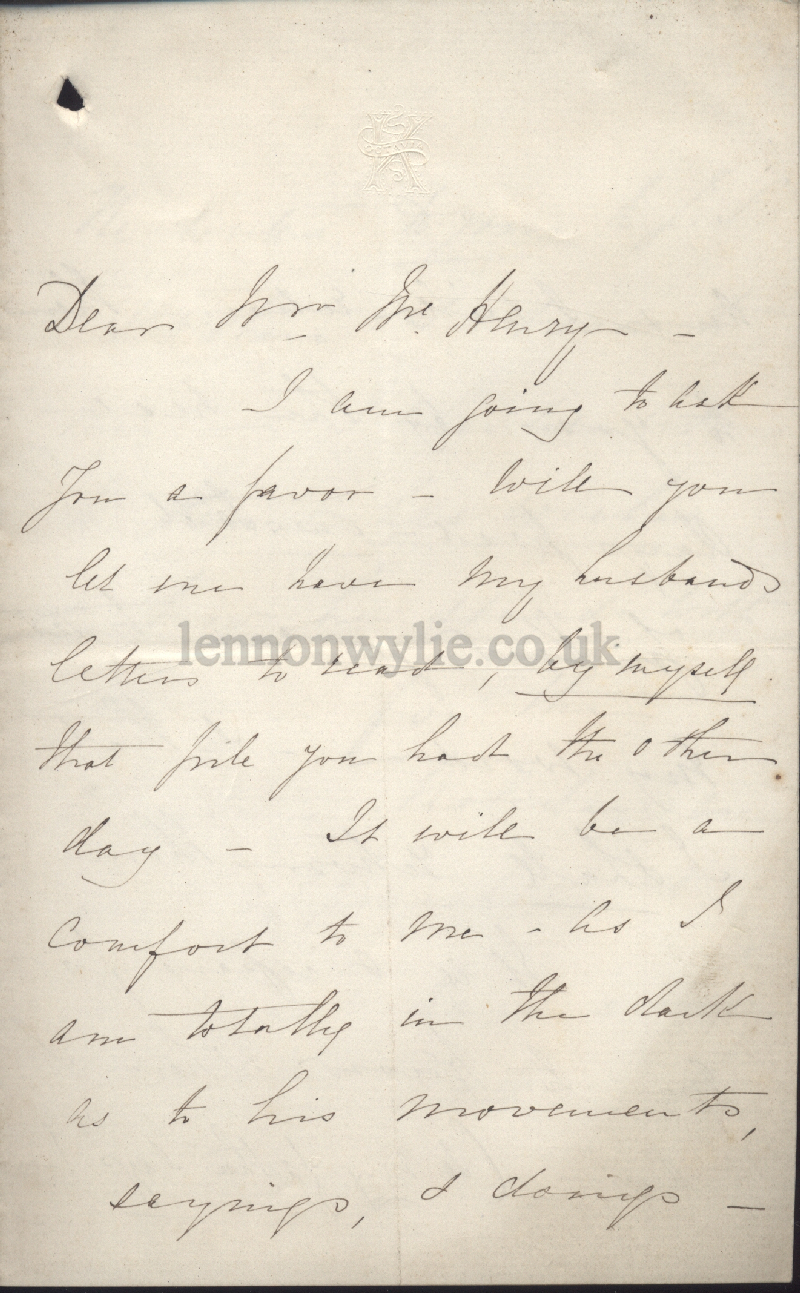 Dear Mrs. Mc. Henry -
I am going to ask
you a favor - Will you
let me have my husbands
letters to read, by myself
lennonwylie.co.uk
that pile you had the other
day - It will be a
comfort to me - as I
am totally in the dark
as to his movements,
sayings, & doings -